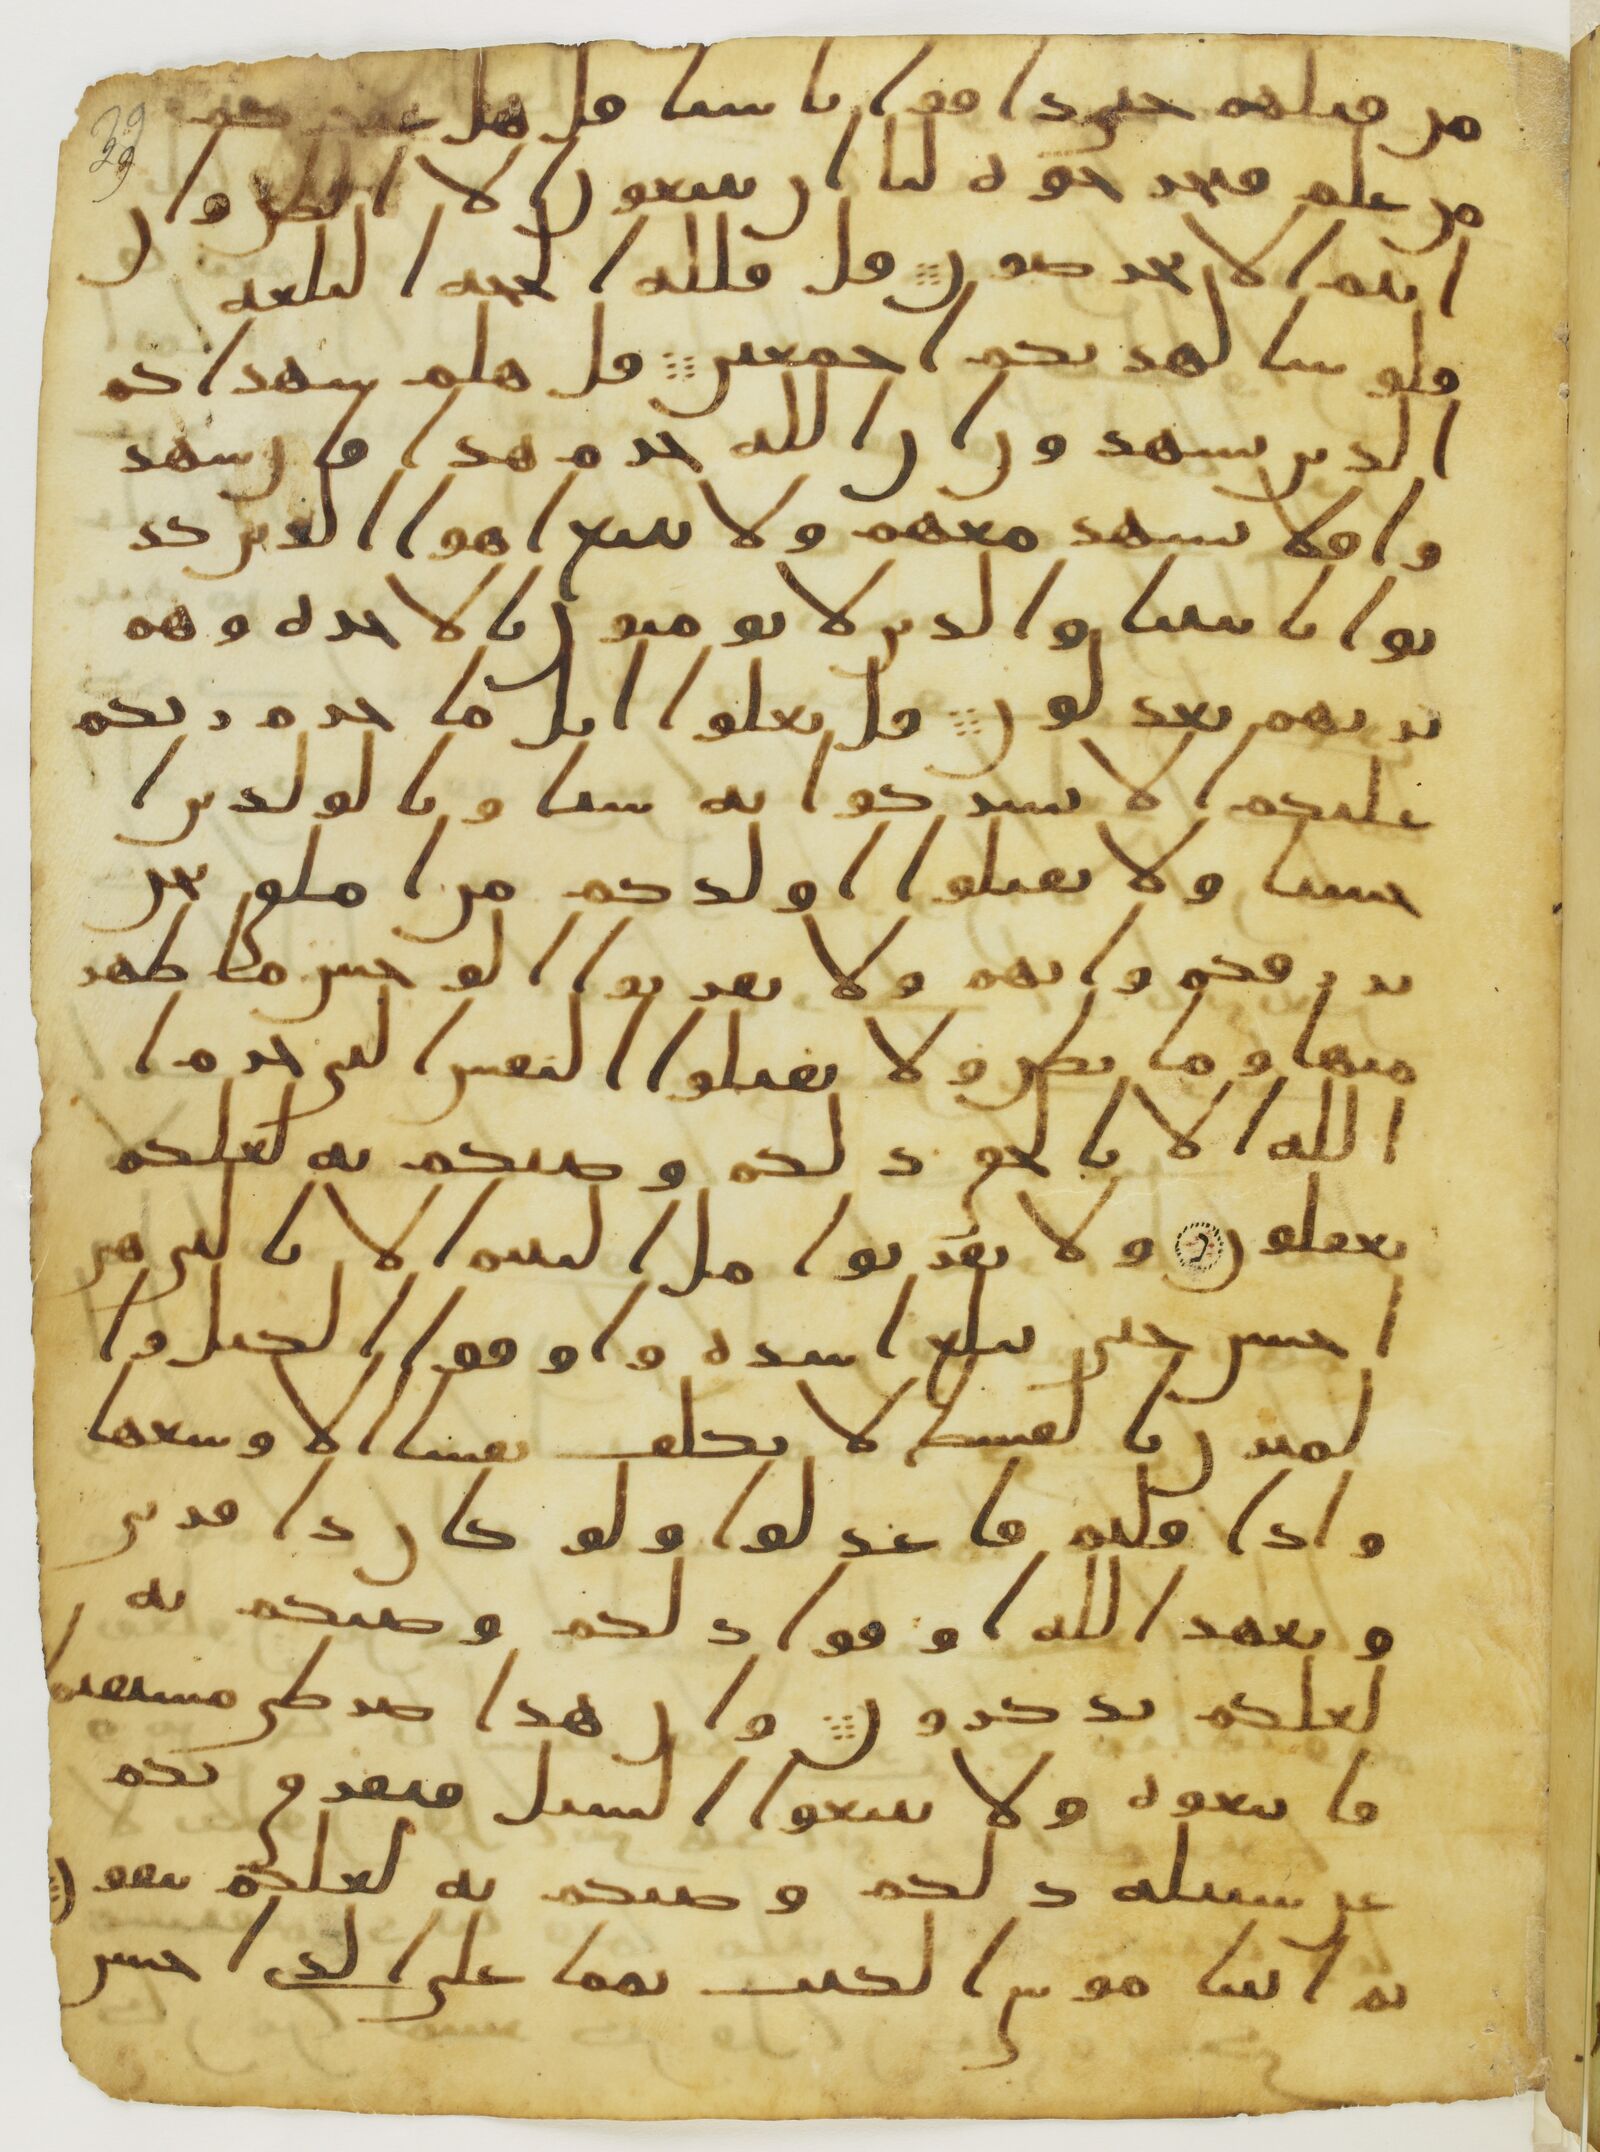 من قبلهم حتى ذاقوا باسنا قل هل عندكم
من علم فتخرجوه لنا ان تتبعون الا الظن وان
انتم الا تخرصون قل فلله الحجه البلغه
فلو شا لهديكم اجمعين قل هلم شهداكم
الذين يشهدون ان الله حرم هذا فان شهد
وا فلا تشهد معهم ولا تتبع اهوا الذين كذ
بوا بايتنا والذين لا يومنون بالاخره وهم
بربهم يعدلون قل تعلوا اتل ما حرم ربكم
عليكم الا تشركوا به شيا وبالولدين ا
حسنا ولا تقتلوا اولدكم من املق نحن
نرزقكم واياهم ولا تقربوا الفوحش ما ظهر
منها وما بطن ولا تقتلوا النفس التي حرم ا
الله الا بالحق ذلكم وصيكم به لعلكم
تعقلون ولا تقربوا مل اليتيم الا بالتي هي
احسن حتى يبلغ اشده واوفوا الكيل وا
لميزن بالقسط لا نكلف نفسا الا وسعها
واذا قلتم فاعدلوا ولو كان ذا قربى
وبعهد الله اوفوا ذلكم وصيكم به
لعلكم تذكرون وان هذا صرطي مستقيما
فاتبعوه ولا تتبعوا السبل فتفرق بكم
عن سبيله ذلكم وصيكم به لعلكم تتقون
ثم اتينا موسى الكتب تمما على الذي احسن